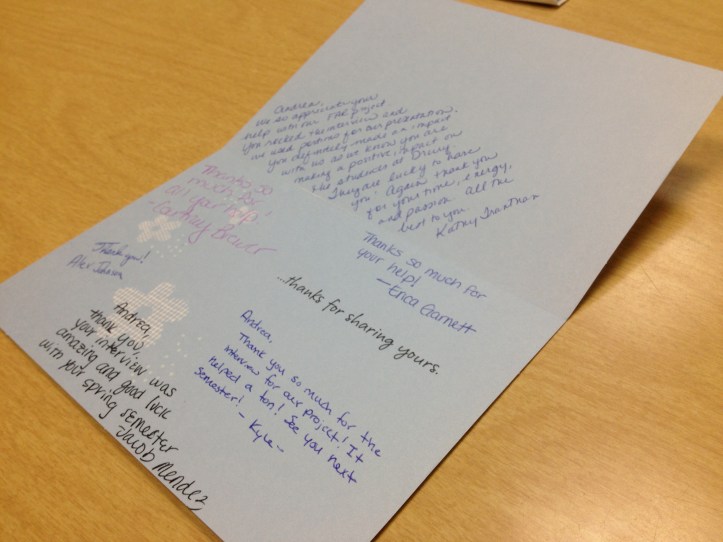 Andrea,
We so appreciate your
help with our FAR project
You rocked the interview and
we used portions for our presentation.
You definitely made an impact
with us as we know you are
making a positive impact on
the students at Drury
They are lucky to have
you! Again thank you
for your time, energy,
and passion. All the
best to you.
Kathy
Thanks so
much for
all your help!
-Cortney Bower
Thank you!
Alex
Thanks so much for
your help!
—Erica Garnett
...thanks for sharing yours.
Andrea,
thank you,
your interview was
amazing and good luck
with your spring semester
-Jacob Mendez
Andrea,
Thank you so much for the
interview for our project! It
helped a ton! See you next
semester! - Kyle-